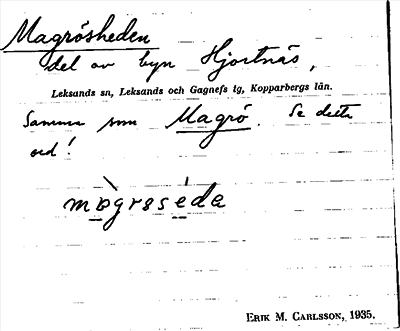 Magrösheden
del av byn Hjortnäs,
Leksands sn, Leksands och Gagnefs tg, Kopparbergs län.
Samma som Magrö. Se detta
ord!
ERIK M. CARLSSON, 1935.